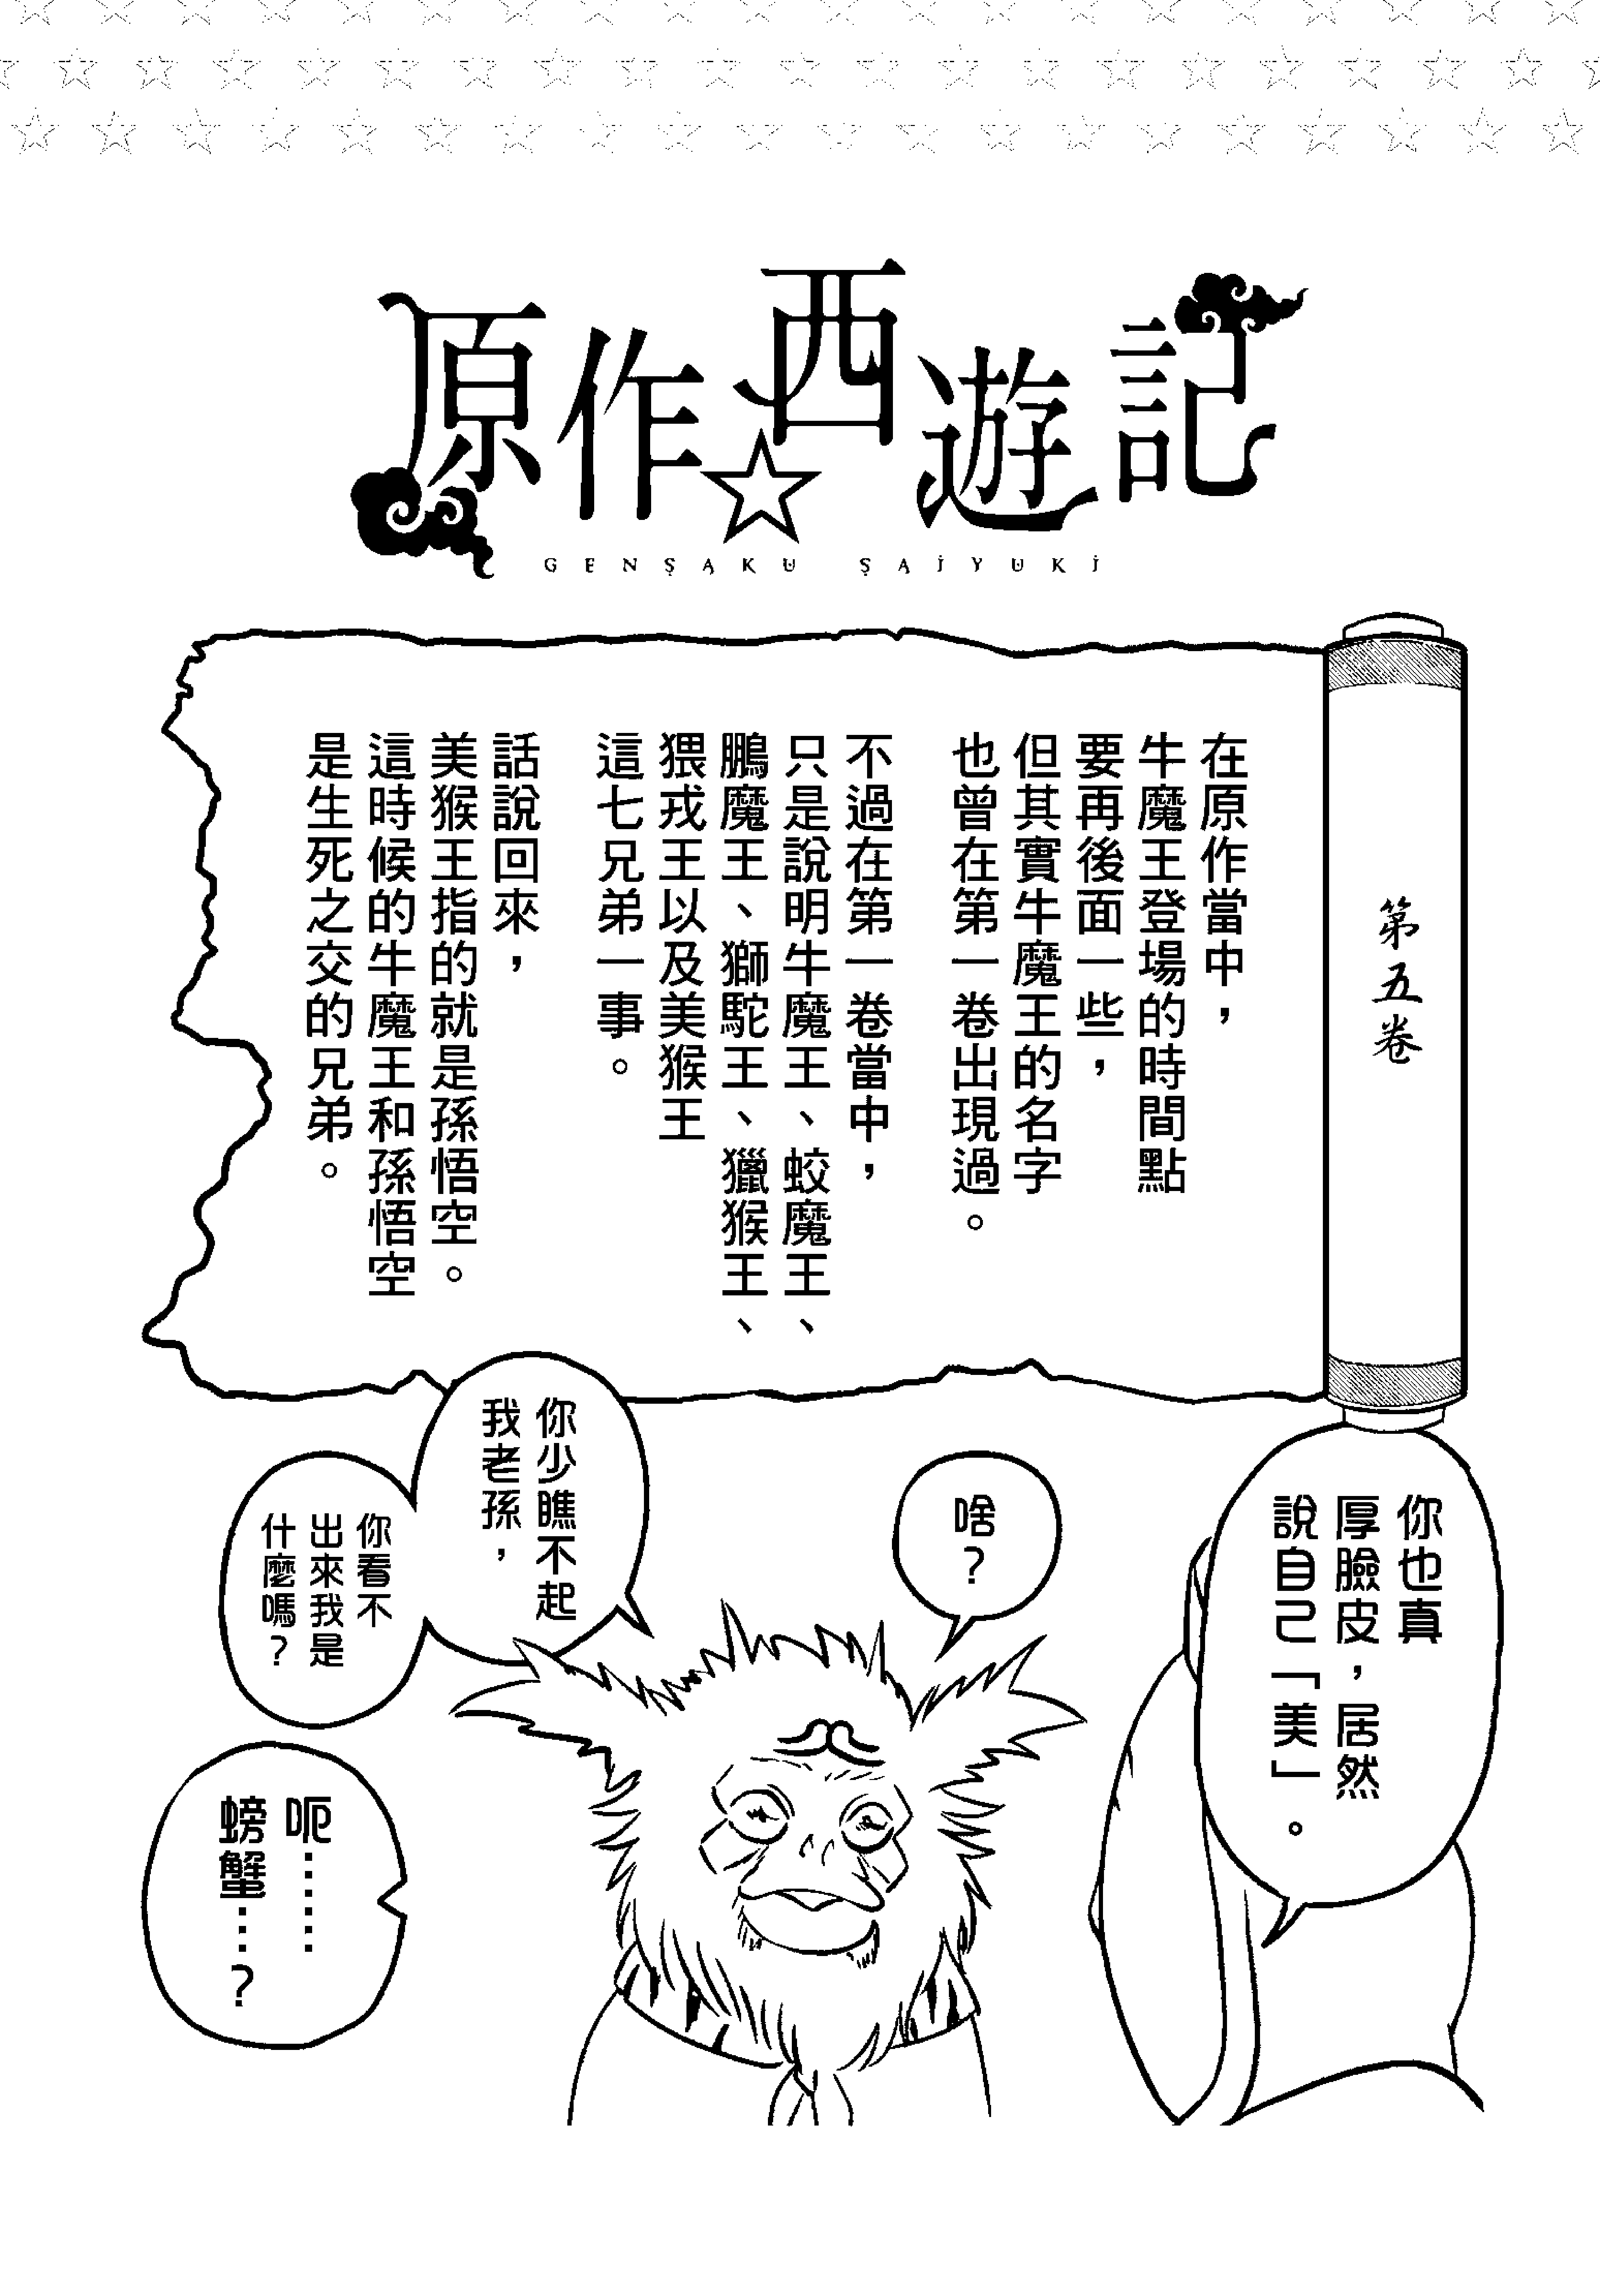 原作☆西遊記
GENSAKU SAIYUKI
第五卷
在原作當中，
牛魔王登場的時間點
要再後面一些，
但其實牛魔王的名字
也曾在第一卷出現過。
不過在第一卷當中，
只是說明牛魔王、蛟魔王、
鵬魔王、獅駝王、獵猴王、
猥戎王以及美猴王
這七兄弟一事。
話說回來，
美猴王指的就是孫悟空。
這時候的牛魔王和孫悟空
是生死之交的兄弟。
你也真
厚臉皮，居然
說自己「美」。
啥？
你少瞧不起
我老孫，
你看不
出來我是
什麼嗎？
呃……
螃蟹…？